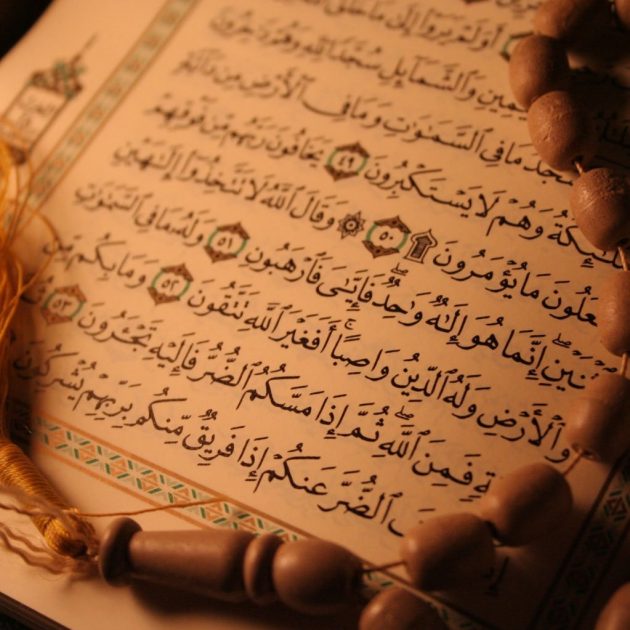 أَوَلَمْ يَرَوْا۟ إِلَىٰ مَا خَلَقَ
وَٱلشَّمَآئِلِ سُجَّدًا لِّلَّهِ وَهُمْ دَٰخِرُونَ
مَا فِى ٱلسَّمَٰوَٰتِ وَمَا فِى ٱلْأَرْضِ مِن دَآبَّةٍ
وَهُمْ لَا يَسْتَكْبِرُونَ ٤٩ يَخَافُونَ رَبَّهُم مِّن فَوْقِهِمْ
مَا يُؤْمَرُونَ ۩ ٥٠ ۞ وَقَالَ ٱللَّهُ لَا تَتَّخِذُوٓا۟ إِلَٰهَيْنِ
إِنَّمَا هُوَ إِلَٰهٌ وَٰحِدٌ ۖ فَإِيَّٰىَ فَٱرْهَبُونِ ٥١ وَلَهُۥ مَا فِى ٱلسَّمَٰوَٰتِ
وَٱلْأَرْضِ وَلَهُ ٱلدِّينُ وَاصِبًا ۚ أَفَغَيْرَ ٱللَّهِ تَتَّقُونَ ٥٢ وَمَا بِكُم مِّن
فَمِنَ ٱللَّهِ ۖ ثُمَّ إِذَا مَسَّكُمُ ٱلضُّرُّ فَإِلَيْهِ تَجْـَٔرُونَ ٥٣ ثُمَّ
ٱلضُّرَّ عَنكُمْ إِذَا فَرِيقٌ مِّنكُم بِرَبِّهِمْ يُشْرِكُونَ